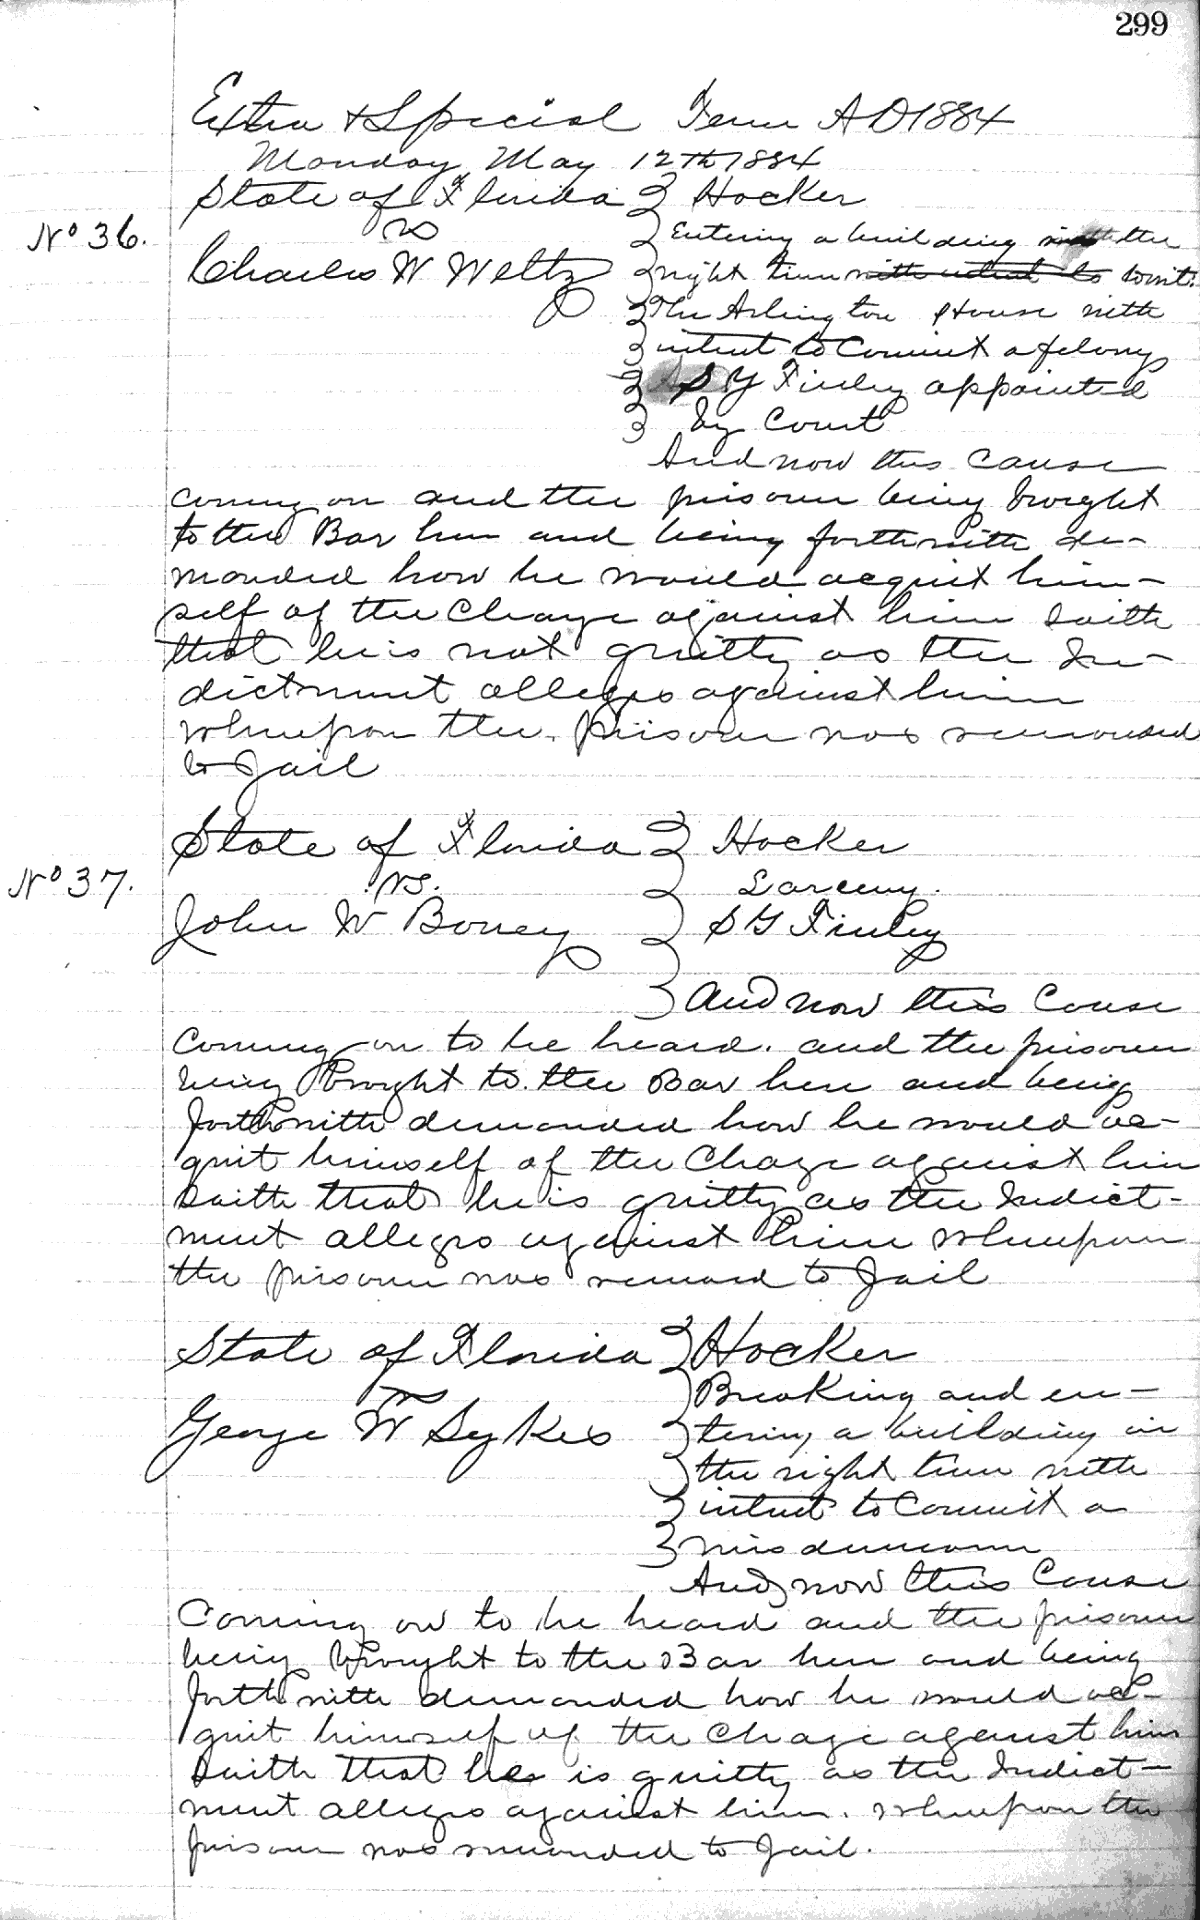 299
Extra & Special Term A D 1884
Monday May 12th 1884
State of Florida } Hocker
No 36. vs } Entering a building in the
Charles W Weltz } night time with intent to towit:
} The Arlington House with
} intent to Commit a felony
} S Y Finley appointed
} by Court
And now this Cause
coming on and the prisoner being brought
to the Bar here and being forthwith de-
manded how he would acquit him-
self of the Charge against him Saith
that he is not guilty as the In-
dictment alleges against him
whereupon the Prisoner was remanded
to Jail
State of Florida } Hocker
No 37. vs. } Larceny.
John W Boney } S G Finley
} And now this Cause
Coming on to be heard. and the prisoner
being brought to the Bar here and being
forthwith demanded how he would ac-
quit himself of the Charge against him
Saith that he is guilty as the Indict-
ment alleges against him whereupon
the prisoner was remand to Jail
State of Florida } Hocker
vs } Breaking and en-
George W Sykes } tering a building in
} the night time with
} intent to Commit a
} misdemeanor
And now this Cause
Coming on to be heard and the prisoner
being brought to the Bar here and being
forthwith demanded how he would ac-
quit himself of the Charge against him
Saith that he is guilty as the Indict-
ment alleges against him. Whereupon the
prisoner was remanded to Jail.